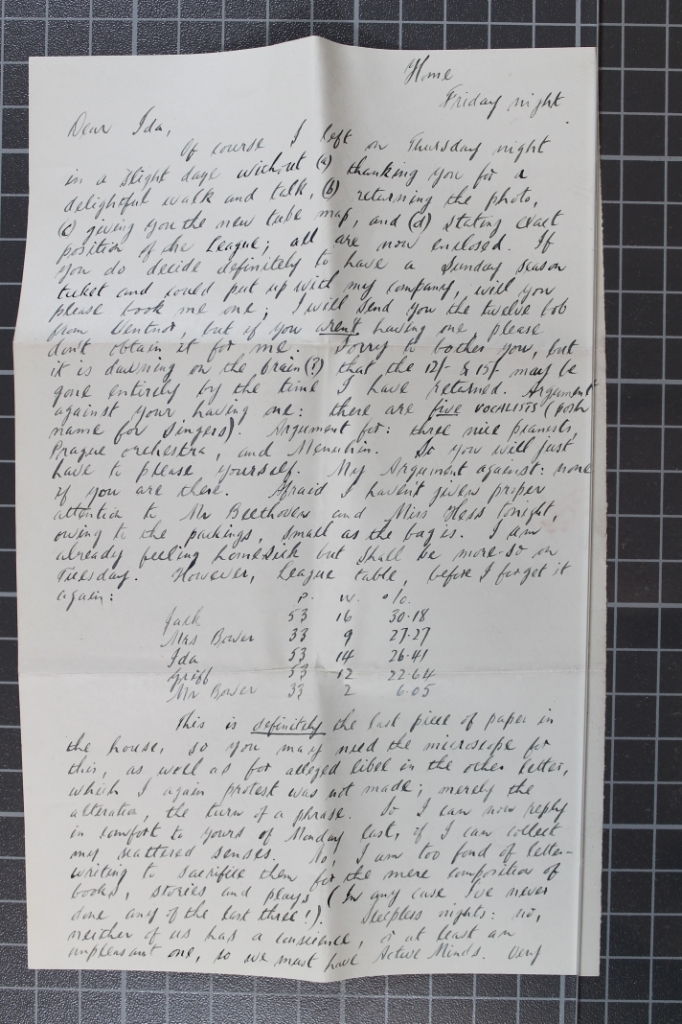 Home
Friday night
Dear Ida,
Of course I left on Thursday night
in a slight daze without (a) thanking you for a
delightful walk and talk, (b) returning the photo,
(c) giving you the new tube map, and (d) stating exact
position of the League; all are now enclosed. If
you do decide definitely to have a Sunday season
ticket and could put up with my company, will you
please book me one; I will send you the twelve bob
from Ventnor, but if you aren't having one, please
don't obtain it for me. Sorry to bother you, but
it is dawning on the brain (?) that the 12/- & 15/- may be
gone entirely by the time I have returned. Argument
against your having one: there are five VOCALISTS (posh
name for singers). Argument for: three nice pianists,
Prague orchestra, and Menuhin. So you will just
have to please yourself. My Argument against: none
if you are there. Afraid I haven't given proper
attention to Mr Beethoven and Miss Hess tonight,
owing to the packings, small as the bag is. I am
already feeling homesick but shall be more-so on
Tuesday. However, League table, before I forget it
again:
P. W. %.
Jack 53 16 30.18
Mrs Bower 33 9 27.27
Ida 53 14 26.41
Griff 53 12 22.64
Mr Bower 33 2 6.05
This is definitely the last piece of paper in
the house, so you may need the microscope for
this, as well as for alleged libel in the other letter,
which I again protest was not made; merely the
alteration, the turn of a phrase. So I can now reply
in comfort to yours of Monday last, if I can collect
my scattered senses. No, I am too fond of letter-
writing to sacrifice them for the mere composition of
books, stories and plays (In any case I've never
done any of the last three!). Sleepless nights: no,
neither of us has a conscience, or at least an
unpleasant one, so we must have Active Minds. Very